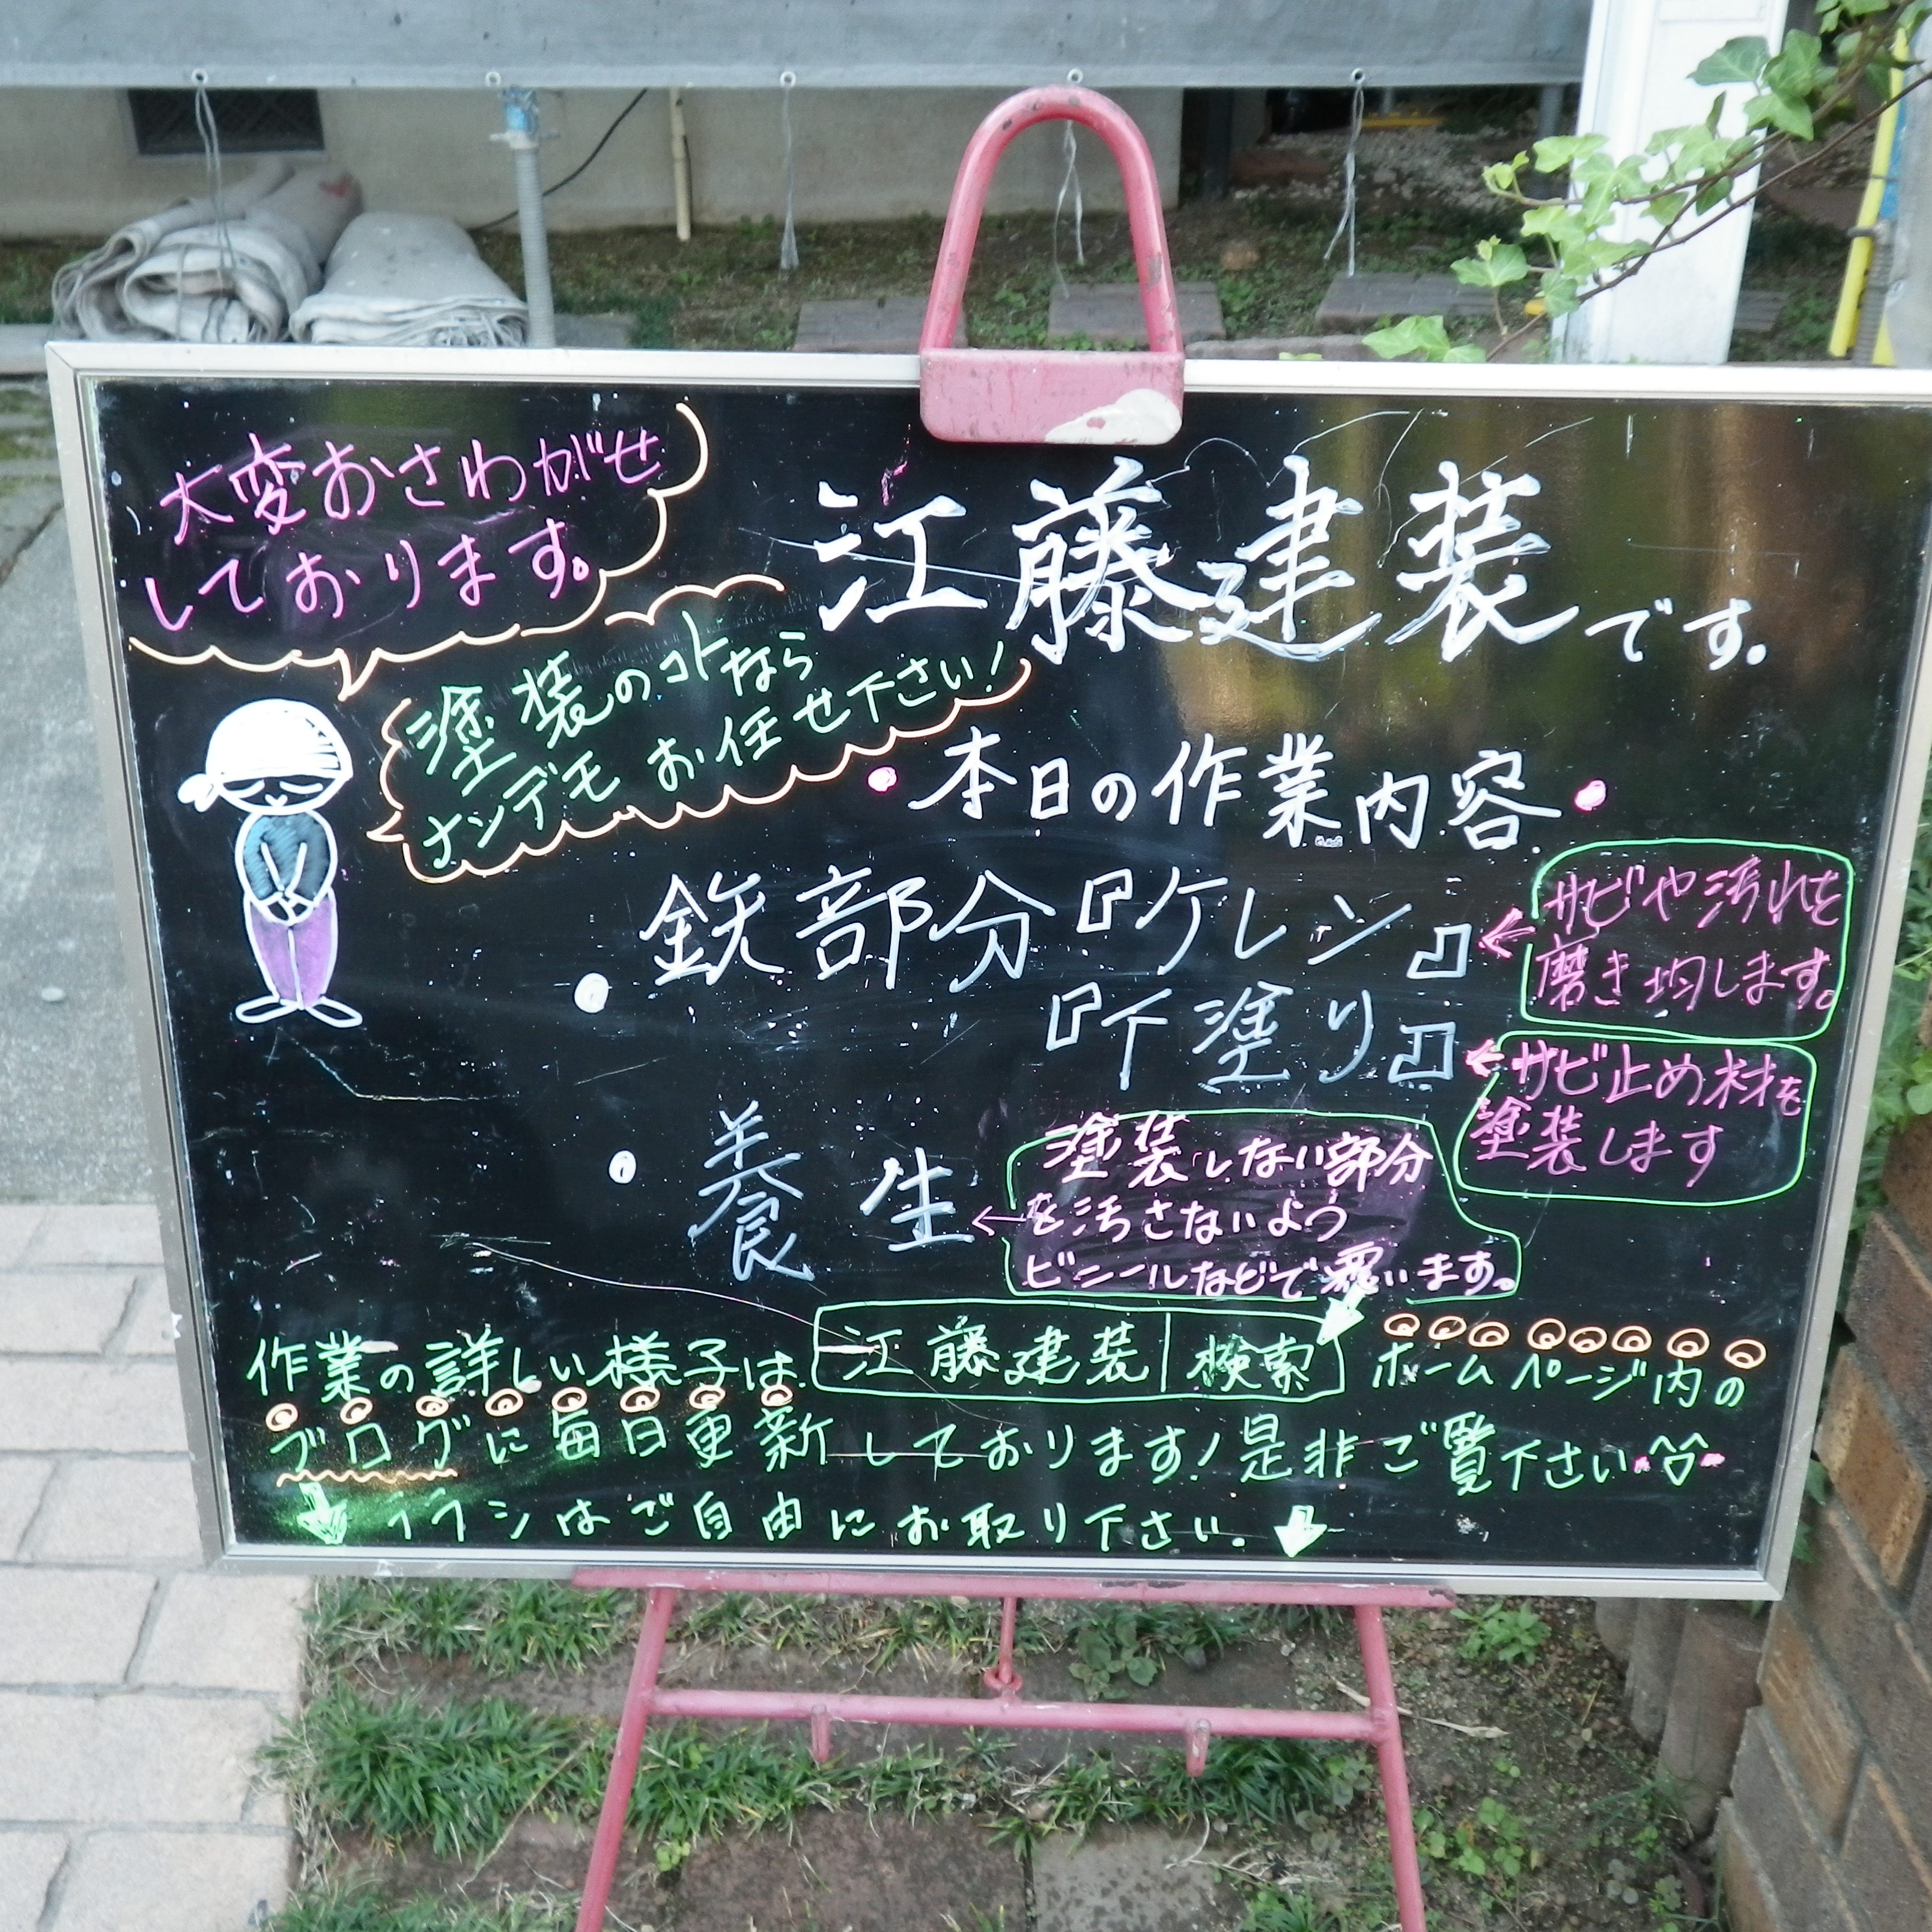 大変おさわがせ
しております。
江藤建装です.
塗装のコトなら
ナンデモお任せ下さい!
・本日の作業内容・
・鉄部分『ケレン』
←サビや汚れを
磨き均します。
『下塗り』
←サビ止め材を
塗装します
・養生
←塗装しない部分
を汚さないよう
ビニールなどで覆います。
作業の詳しい様子は 江藤建装 検索 ホームページ内の
ブログに毎日更新しております!是非ご覧下さい
チラシはご自由にお取り下さい.